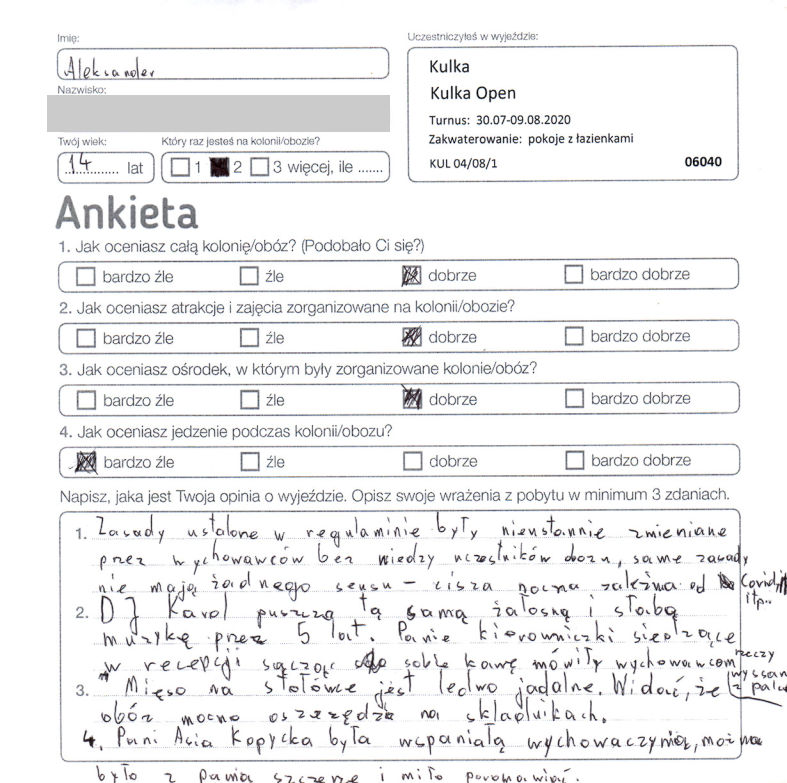 Imię:
Aleksander
Nazwisko:
Twój wiek:
14 lat
Który raz jesteś na kolonii/obozie?
1 2 3 więcej, ile .......
Uczestniczyłeś w wyjeździe:
Kulka
Kulka Open
Turnus: 30.07-09.08.2020
Zakwaterowanie: pokoje z łazienkami
KUL 04/08/1 06040
Ankieta
1. Jak oceniasz całą kolonię/obóz? (Podobało Ci się?)
bardzo źle źle dobrze bardzo dobrze
2. Jak oceniasz atrakcje i zajęcia zorganizowane na kolonii/obozie?
bardzo źle źle dobrze bardzo dobrze
3. Jak oceniasz ośrodek, w którym były zorganizowane kolonie/obóz?
bardzo źle źle dobrze bardzo dobrze
4. Jak oceniasz jedzenie podczas kolonii/obozu?
bardzo źle źle dobrze bardzo dobrze
Napisz, jaka jest Twoja opinia o wyjeździe. Opisz swoje wrażenia z pobytu w minimum 3 zdaniach.
1. Zasady ustalone w regulaminie były nieustannie zmieniane
przez wychowawców bez wiedzy uczestników obozu, same zasady
nie mają żadnego sensu – cisza nocna zależna od Covid,
itp..
2. DJ Karol puszcza tą samą żałosną i słabą
muzykę przez 5 lat. Panie kierowniczki siedzące
w recepcji sącząc sobie kawę mówiły wychowawcom rzeczy
wyssane
z palca
3. Mięso na stołówce jest ledwo jadalne. Widać, że
obóz mocno oszczędza na składnikach.
4. Pani Asia Kopycka była wspaniałą wychowaczynią, można
było z Panią szczerze i miło porozmawiać.